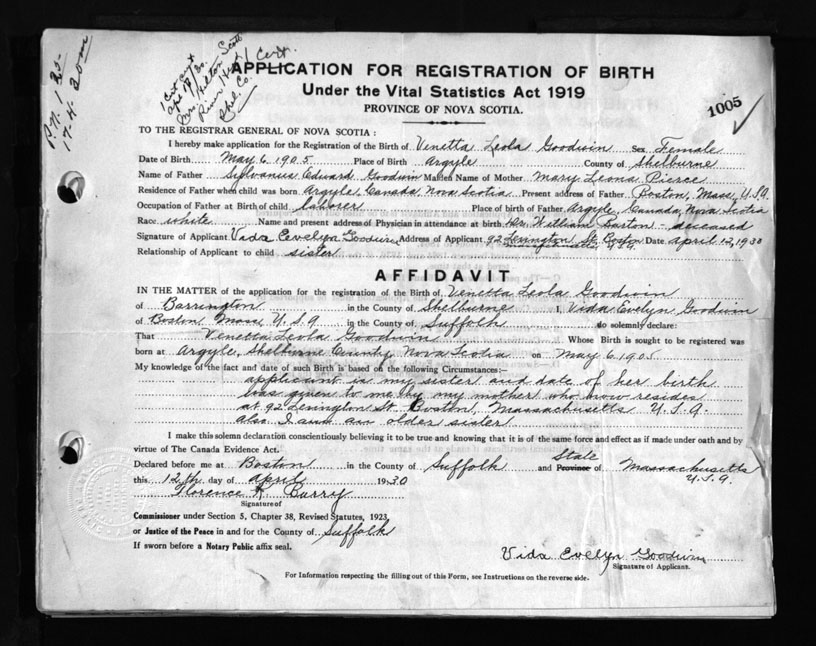 P.N. 1 25-
17-4. 30 m
1 Cert. apt
Apr 17/30.
Mrs. Hilton Scott
River Head
Shel. Co.
1 Cert.
APPLICATION FOR REGISTRATION OF BIRTH
Under the Vital Statistics Act 1919
PROVINCE OF NOVA SCOTIA.
1005
TO THE REGISTRAR GENERAL OF NOVA SCOTIA:
I hereby make application for the Registration of the Birth of Venetta Leola Goodwin Sex Female
Date of Birth May 6, 1905 Place of Birth Argyle County of Shelburne
Name of Father Sylvanus Edward Goodwin Maiden Name of Mother Mary Leona Pierce
Residence of Father when child was born Argyle, Canada, Nova Scotia Present address of Father Boston, Mass, U.S.A.
Occupation of Father at Birth of child laborer Place of birth of Father Argyle, Canada, Nova Scotia
Race white Name and present address of Physician in attendance at birth Dr. William Barton - deceased
Signature of Applicant Vida Evelyn Goodwin Address of Applicant 92 Lenington St. Boston Date April 12, 1930
Relationship of Applicant to child sister
AFFIDAVIT
IN THE MATTER of the application for the registration of the Birth of Venetta Leola Goodwin
of Barrington in the County of Shelburne I, Vida Evelyn Goodwin
of Boston, Mass, U.S.A. in the County of Suffolk do solemnly declare:
That Venetta Leola Goodwin Whose Birth is sought to be registered was
born at Argyle, Shelburne County, Nova Scotia on May 6, 1905
My knowledge of the fact and date of such Birth is based on the following Circumstances:—
applicant is my sister and date of her birth
was given to me by my mother who now resides
at 92 Lenington St. Boston, Massachusetts U.S.A.
also I am an older sister
I make this solemn declaration conscientiously believing it to be true and knowing that it is of the same force and effect as if made under oath and by
virtue of The Canada Evidence Act.
Declared before me at Boston in the County of Suffolk and State Province of Massachusetts
this 12th day of April 1930 U.S.A.
Florence A. Curry
Signature of
Commissioner under Section 5, Chapter 38, Revised Statutes, 1923,
or Justice of the Peace in and for the County of Suffolk
If sworn before a Notary Public affix seal.
Vida Evelyn Goodwin
Signature of Applicant.
For Information respecting the filling out of this Form, see Instructions on the reverse side.